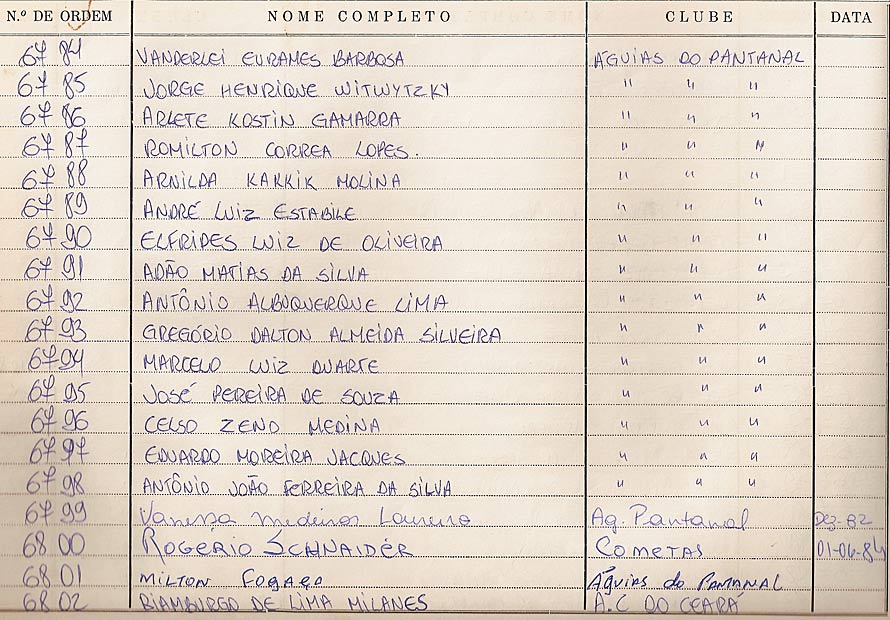 N.º DE ORDEM NOME COMPLETO CLUBE DATA
67 84 VANDERLEI EURAMES BARBOSA ÁGUIAS DO PANTANAL
67 85 JORGE HENRIQUE WITWYTZKY " " "
67 86 ARLETE KOSTIN GAMARRA " " "
67 87 ROMILTON CORREA LOPES. " " "
67 88 ARNILDA KAKKIK MOLINA " " "
67 89 ANDRÉ LUIZ ESTABILE " " "
67 90 ELFRIDES LUIZ DE OLIVEIRA " " "
67 91 ADÃO MATIAS DA SILVA " " "
67 92 ANTÔNIO ALBUQUERQUE LIMA " " "
67 93 GREGÓRIO DALTON ALMEIDA SILVEIRA " " "
67 94 MARCELO LUIZ DUARTE " " "
67 95 JOSÉ PEREIRA DE SOUZA " " "
67 96 CELSO ZENO MEDINA " " "
67 97 EDUARDO MOREIRA JACQUES " " "
67 98 ANTÔNIO JOÃO FERREIRA DA SILVA " " "
67 99 Vanessa Medeiros Loureiro Ag. Pantanal Dez-82
68 00 ROGERIO SCHNAIDER COMETAS 01-06-84
68 01 MILTON FOGAÇA Águias do PANTANAL
68 02 BIAMBURGO DE LIMA MILANES A.C DO CEARÁ